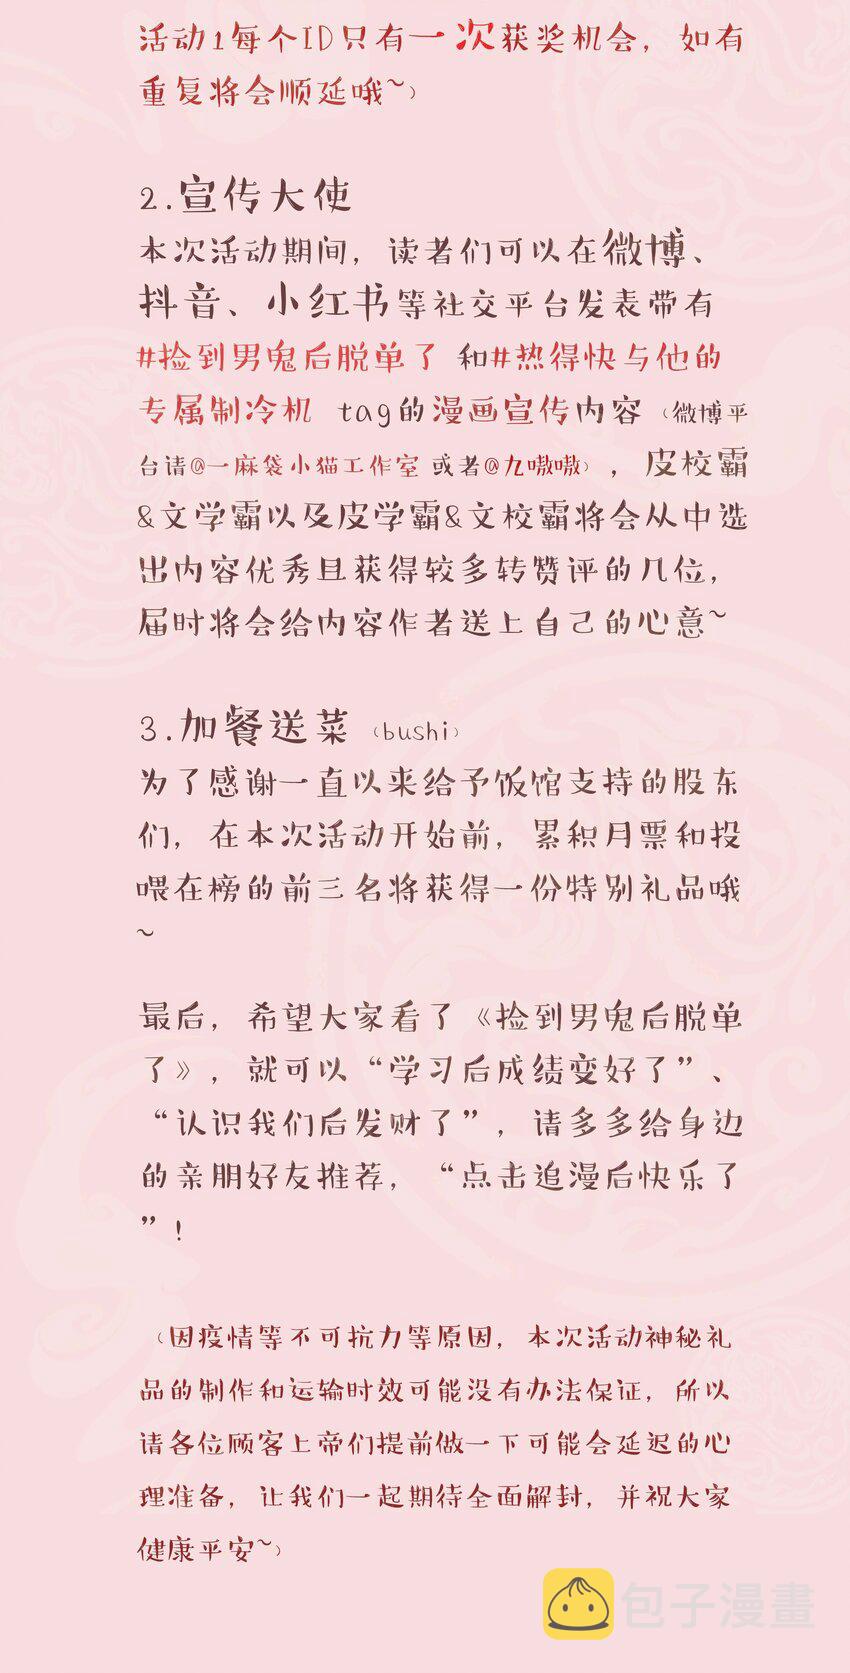 活动1每个ID只有一次获奖机会，如有
重复将会顺延哦~）
2.宣传大使
本次活动期间，读者们可以在微博、
抖音、小红书等社交平台发表带有
#捡到男鬼后脱单了 和#热得快与他的
专属制冷机 tag的漫画宣传内容（微博平
台请@一麻袋小猫工作室 或者@九嗷嗷），皮校霸
&文学霸以及皮学霸&文校霸将会从中选
出内容优秀且获得较多转赞评的几位，
届时将会给内容作者送上自己的心意~
3.加餐送菜（bushi）
为了感谢一直以来给予饭馆支持的股东
们，在本次活动开始前，累积月票和投
喂在榜的前三名将获得一份特别礼品哦
~
最后，希望大家看了《捡到男鬼后脱单
了》，就可以“学习后成绩变好了”、
“认识我们后发财了”，请多多给身边
的亲朋好友推荐，“点击追漫后快乐了
”！
（因疫情等不可抗力等原因，本次活动神秘礼
品的制作和运输时效可能没有办法保证，所以
请各位顾客上帝们提前做一下可能会延迟的心
理准备，让我们一起期待全面解封，并祝大家
健康平安~）
包子漫畫